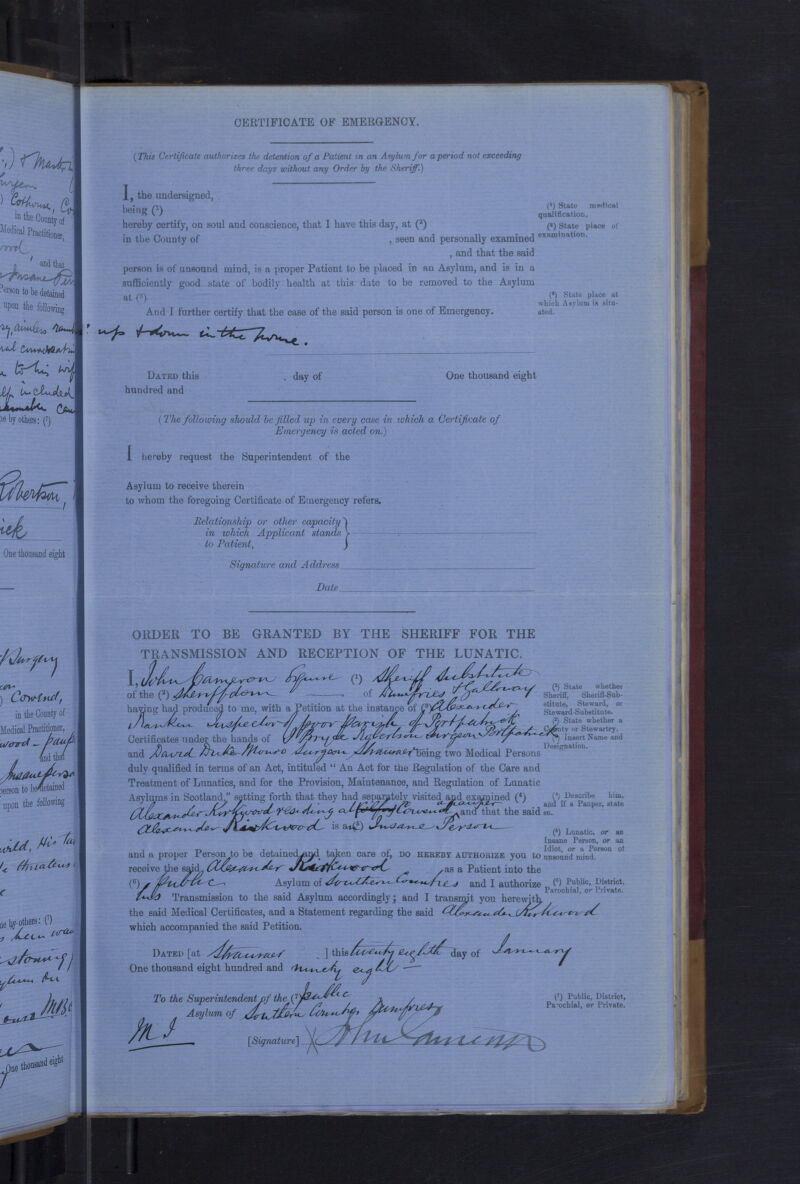 :,) & Mast
Surgeon
) Cothouse, Co
in the County of
Medical Practitioner,
wood,
and that
Insane Per
Person to be detained
upon the following
sy, aimless
up & down in the house.
to his wif
elf included
ne by others: (⁷)
Robertson,
ick
One thousand eight
Surgery
) Cowend,
in the County of
Medical Practitioner,
wood – paup
and that
Insane perso
person to be detained
upon the following
wild, His
threatens
ne by others: (⁷)
been
One thousand eight
CERTIFICATE OF EMERGENCY.
(This Certificate authorizes the detention of a Patient in an Asylum for a period not exceeding
three days without any Order by the Sheriff.)
I, the undersigned,
being (¹)
hereby certify, on soul and conscience, that I have this day, at (²)
in the County of , seen and personally examined
, and that the said
person is of unsound mind, is a proper Patient to be placed in an Asylum, and is in a
sufficiently good state of bodily health at this date to be removed to the Asylum
at (³)
And I further certify that the case of the said person is one of Emergency.
(¹) State medical
qualification.
(²) State place of
examination.
(³) State place at
which Asylum is situ-
ated.
DATED this . day of One thousand eight
hundred and
(The following should be filled up in every case in which a Certificate of
Emergency is acted on.)
I hereby request the Superintendent of the
Asylum to receive therein
to whom the foregoing Certificate of Emergency refers.
Relationship or other capacity
in which Applicant stands
to Patient,
Signature and Address
Date
ORDER TO BE GRANTED BY THE SHERIFF FOR THE
TRANSMISSION AND RECEPTION OF THE LUNATIC.
I, John Cameron Esquire (¹) Sheriff Substitute
of the (²) Sheriffdom of Dumfries & Galloway
having had produced to me, with a Petition at the instance of (³) Alexander
Rankin Inspector of poor parish of Portpatrick
Certificates under the hands of J Bryde Robertson Surgeon Portpatrick
and David Duke Monro Surgeon Stranraer being two Medical Persons
duly qualified in terms of an Act, intituled "An Act for the Regulation of the Care and
Treatment of Lunatics, and for the Provision, Maintenance, and Regulation of Lunatic
Asylums in Scotland," setting forth that they had separately visited and examined (⁴)
Alexander Kirkwood residing at Cowend a pauper and that the said
Alexander Kirkwood is an (⁵) Insane Person
and a proper Person to be detained and taken care of, DO HEREBY AUTHORIZE YOU to
receive the said Alexander Kirkwood as a Patient into the
(⁶) Public Asylum of Southern Counties and I authorize
his Transmission to the said Asylum accordingly; and I transmit you herewith
the said Medical Certificates, and a Statement regarding the said Alexander Kirkwood
which accompanied the said Petition.
(¹) State whether
Sheriff, Sheriff-Sub-
stitute, Steward, or
Steward-Substitute.
(²) State whether a
County or Stewartry.
(³) Insert Name and
Designation.
(⁴) Describe him,
and if a Pauper, state
so.
(⁵) Lunatic, or an
Insane Person, or an
Idiot, or a Person of
unsound mind.
(⁶) Public, District,
Parochial, or Private.
DATED [at Stranraer ] this twenty eighth day of January
One thousand eight hundred and ninety eight –
To the Superintendent of the (⁷) public
Asylum of Southern Counties Dumfries
(⁷) Public, District,
Parochial, or Private.
M I
[Signature] John Cameron